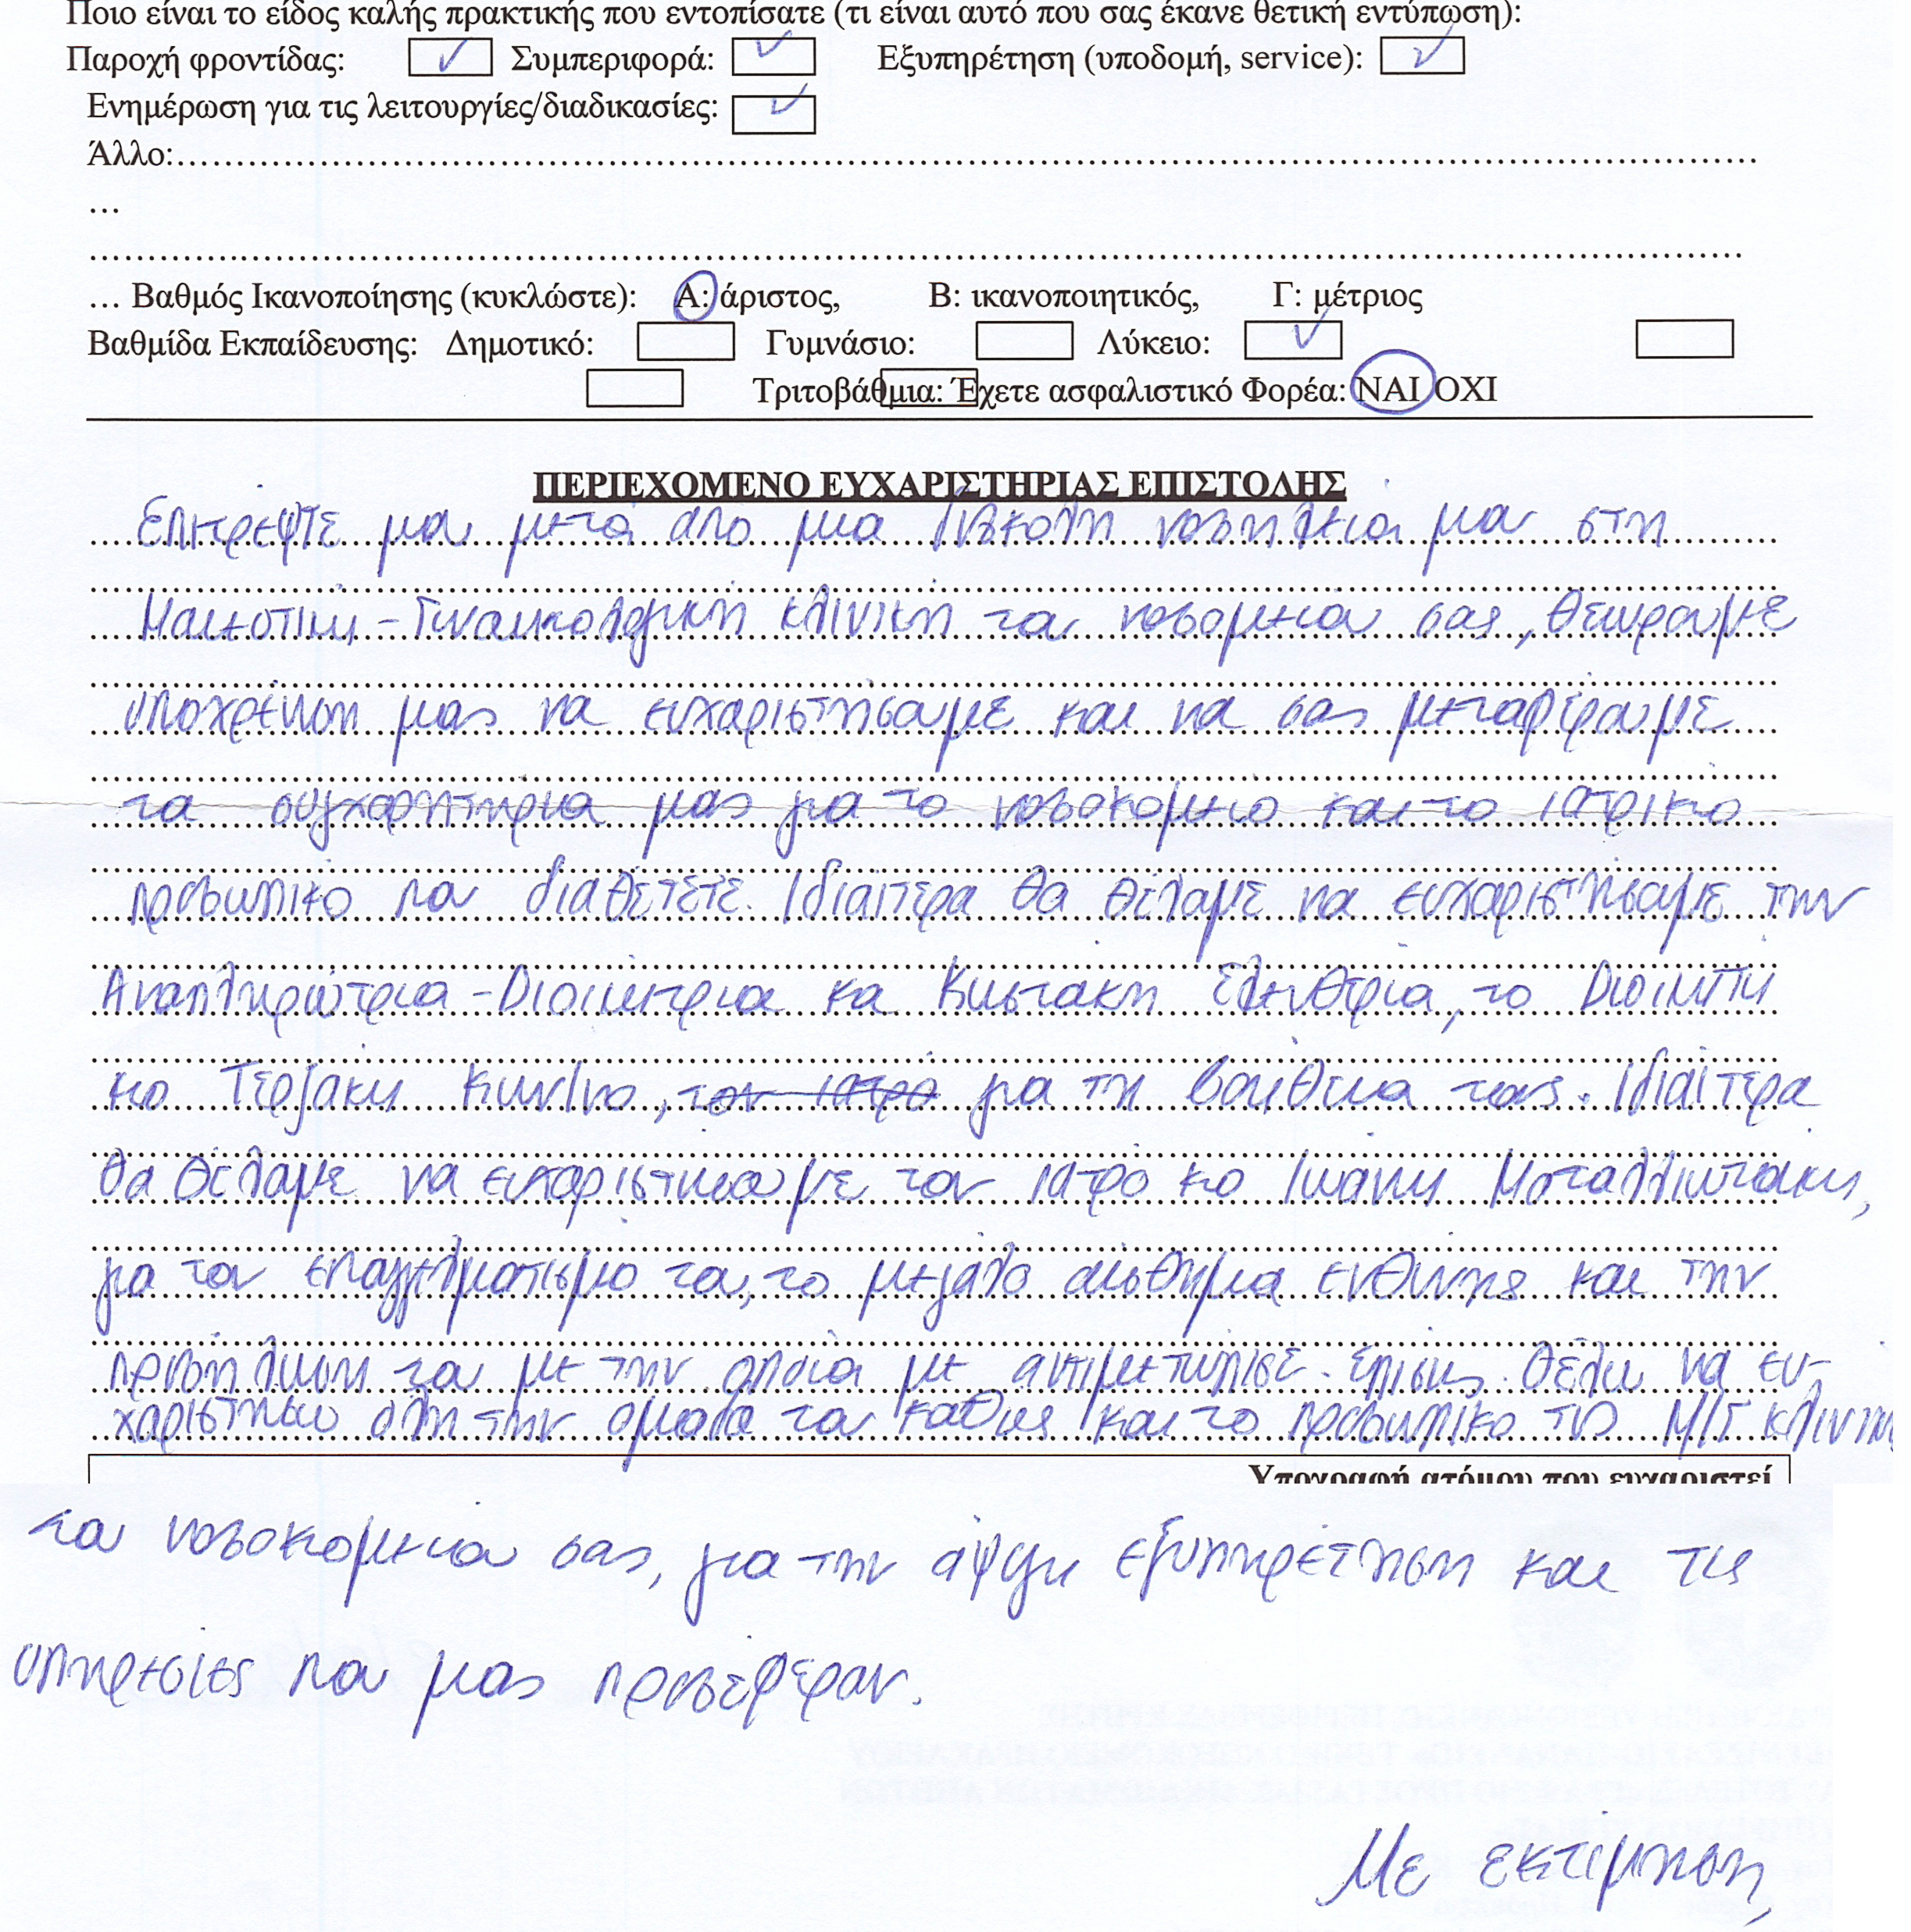 Ποιο είναι το είδος καλής πρακτικής που εντοπίσατε (τι είναι αυτό που σας έκανε θετική εντύπωση):
Παροχή φροντίδας: ✓ Συμπεριφορά: ✓ Εξυπηρέτηση (υποδομή, service): ✓
Ενημέρωση για τις λειτουργίες/διαδικασίες: ✓
Άλλο:……………………………………………………………………………………………
…
……………………………………………………………………………………………
… Βαθμός Ικανοποίησης (κυκλώστε): Α: άριστος, Β: ικανοποιητικός, Γ: μέτριος
Βαθμίδα Εκπαίδευσης: Δημοτικό: Γυμνάσιο: Λύκειο: ✓
Τριτοβάθμια: Έχετε ασφαλιστικό Φορέα: ΝΑΙ ΟΧΙ
ΠΕΡΙΕΧΟΜΕΝΟ ΕΥΧΑΡΙΣΤΗΡΙΑΣ ΕΠΙΣΤΟΛΗΣ
Επιτρέψτε μου μετά από μια δύσκολη νοσηλεία μου στη
Μαιευτική - Γυναικολογική κλινική του νοσομείου σας, θεωρούμε
υποχρέωση μας να ευχαριστήσουμε και να σας μεταφέρουμε
τα συγχαρητήρια μας για το νοσοκομειο και το ιατρικο
προσωπικο που διαθέτετε. Ιδιαίτερα θα θέλαμε να ευχαριστήσουμε την
Αναπληρώτρια - Διοικητρια κα Κωστακη Ελευθερία, το Διοικητη
κο Τερζακη Κων/νο, τον ιατρο για τη βοηθεια τους. Ιδιαίτερα
θα θέλαμε να ευχαριστησουμε τον ιατρο κο Ιωαννη Μεταλλιωτακη,
για τον επαγγελματισμο του, το μεγαλο αισθημα ευθυνης και την
προσηλωση του με την οποια με αντιμετωπισε. Επισης θελω να ευ-
χαριστησω ολη την ομαδα του καθως και το προσωπικο της Μ/Γ κλινικης
Υπογραφή ατόμου που ευχαριστεί
του νοσοκομειου σας, για την άψογη εξυπηρέτηση και τις
υπηρεσίες που μας προσεφεραν.
Με εκτίμηση,